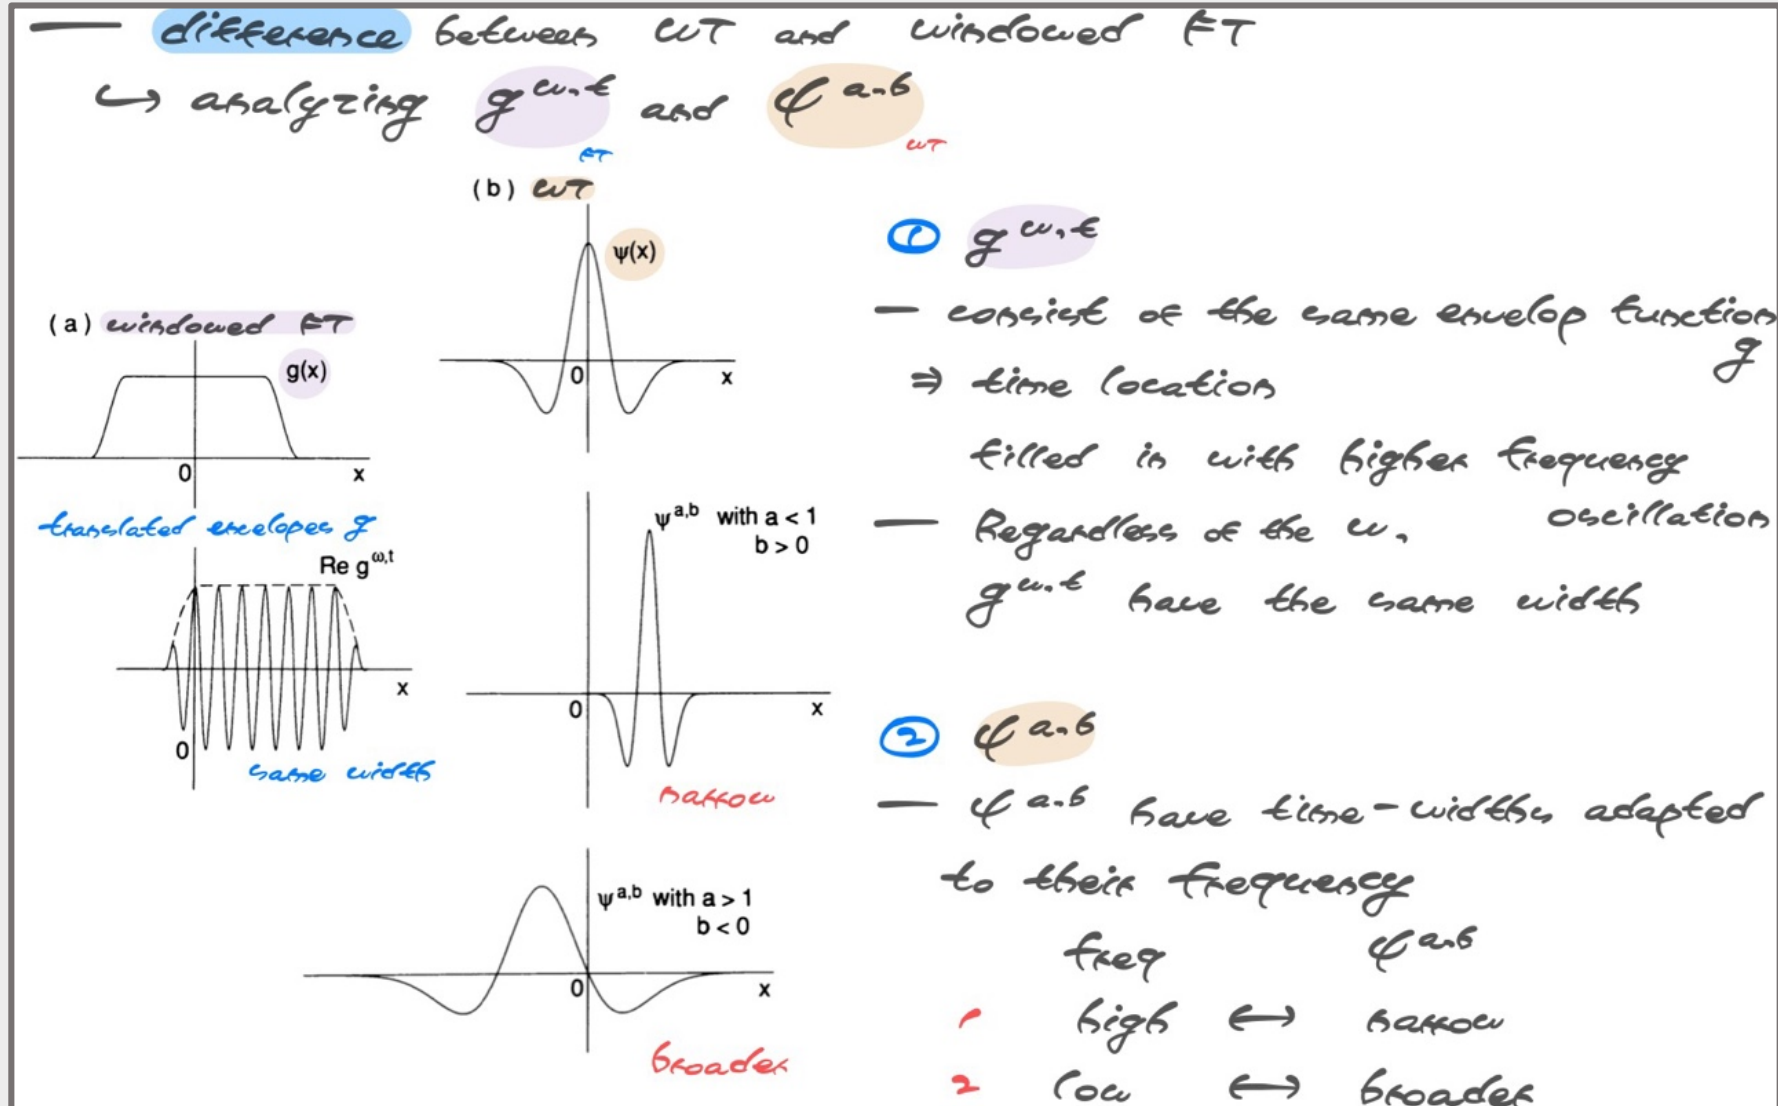 — difference between WT and windowed FT
↪ analyzing g^ω,t and ψ^a,b
FT
WT
(b) WT
ψ(x)
0
x
(a) windowed FT
g(x)
0
x
translated envelopes g
Re g^ω,t
x
0
same width
ψ^a,b with a < 1
b > 0
0
x
narrow
ψ^a,b with a > 1
b < 0
0
x
broader
① g^ω,t
— consist of the same envelop function
g
⇒ time location
filled in with higher frequency
oscillation
— Regardless of the ω,
g^ω,t have the same width
② ψ^a,b
— ψ^a,b have time-widths adapted
to their frequency
freq ψ^a,b
1 high ↔ narrow
2 low ↔ broader